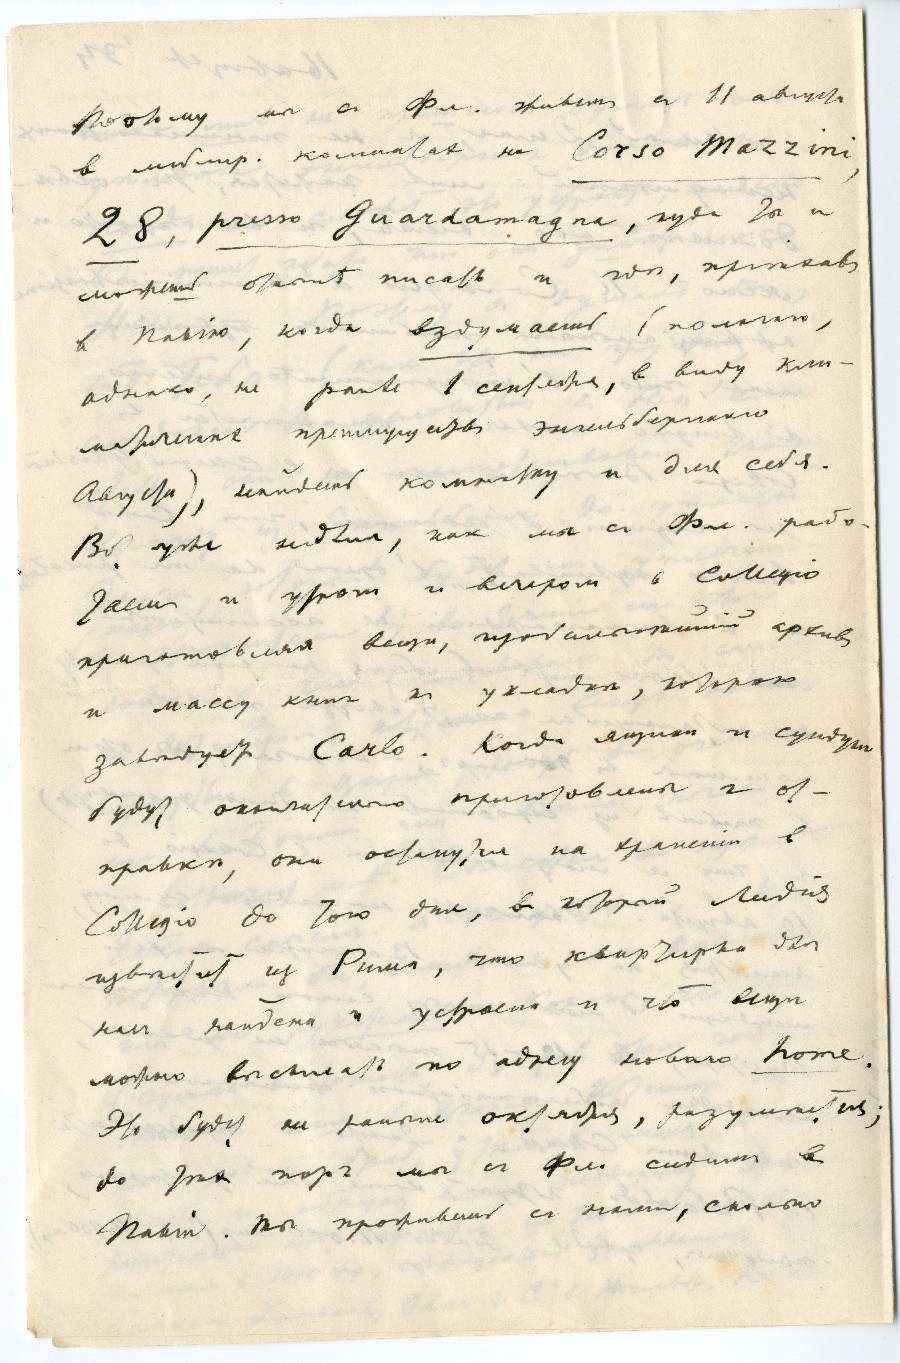 Поэтому мы с Фл. живемъ съ 11 августа
в меблир. комнатах на Corso Mazzini,
28, presso Guardamagna, куда ты и
можешь отвѣтъ писать и где, приѣхавъ
в Павiю, когда вздумаешь (полагаю,
однако, не ранѣе 1 сентября, в виду кли-
матических преимуществъ энгельбергскаго
Августа), найдешь комнатку и для себя.
Вы уже видѣли, как мы с Фл. рабо-
таем и утром и вечером в Collegio
приготовляя вещи, архивъ
и массу книг къ укладкѣ, которою
завѣдуетъ Carlo. Когда ящики и сундуки
будут окончательно приготовлены к от-
правкѣ, они останутся на храненiи в
Collegio до того дня, в который Лидiя
извѣстит из Рима, что квартирка для
нас найдена и устроена и что вещи
можно высылать по адресу новаго home.
Это будет не раньше октября, разумѣется;
до тѣх поръ мы с Фл. сидим в
Павiи. Ты проживешь с нами, сколько